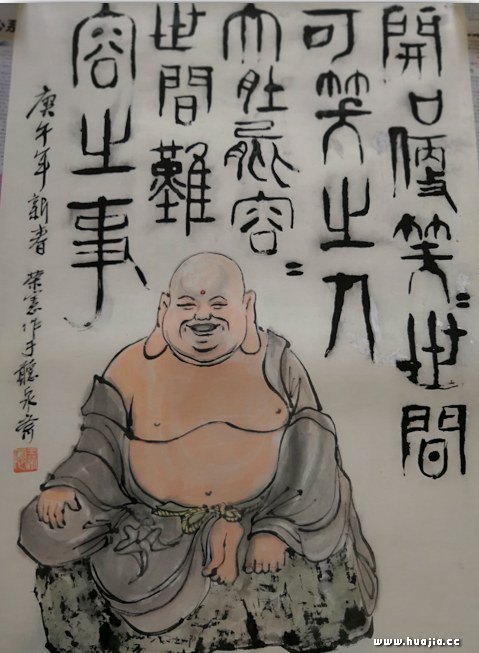 開口便笑=世間
可笑之人
大肚能容=
世間難
容之事
庚午年新春 榮憲作于聽泉齋
www.huajia.cc